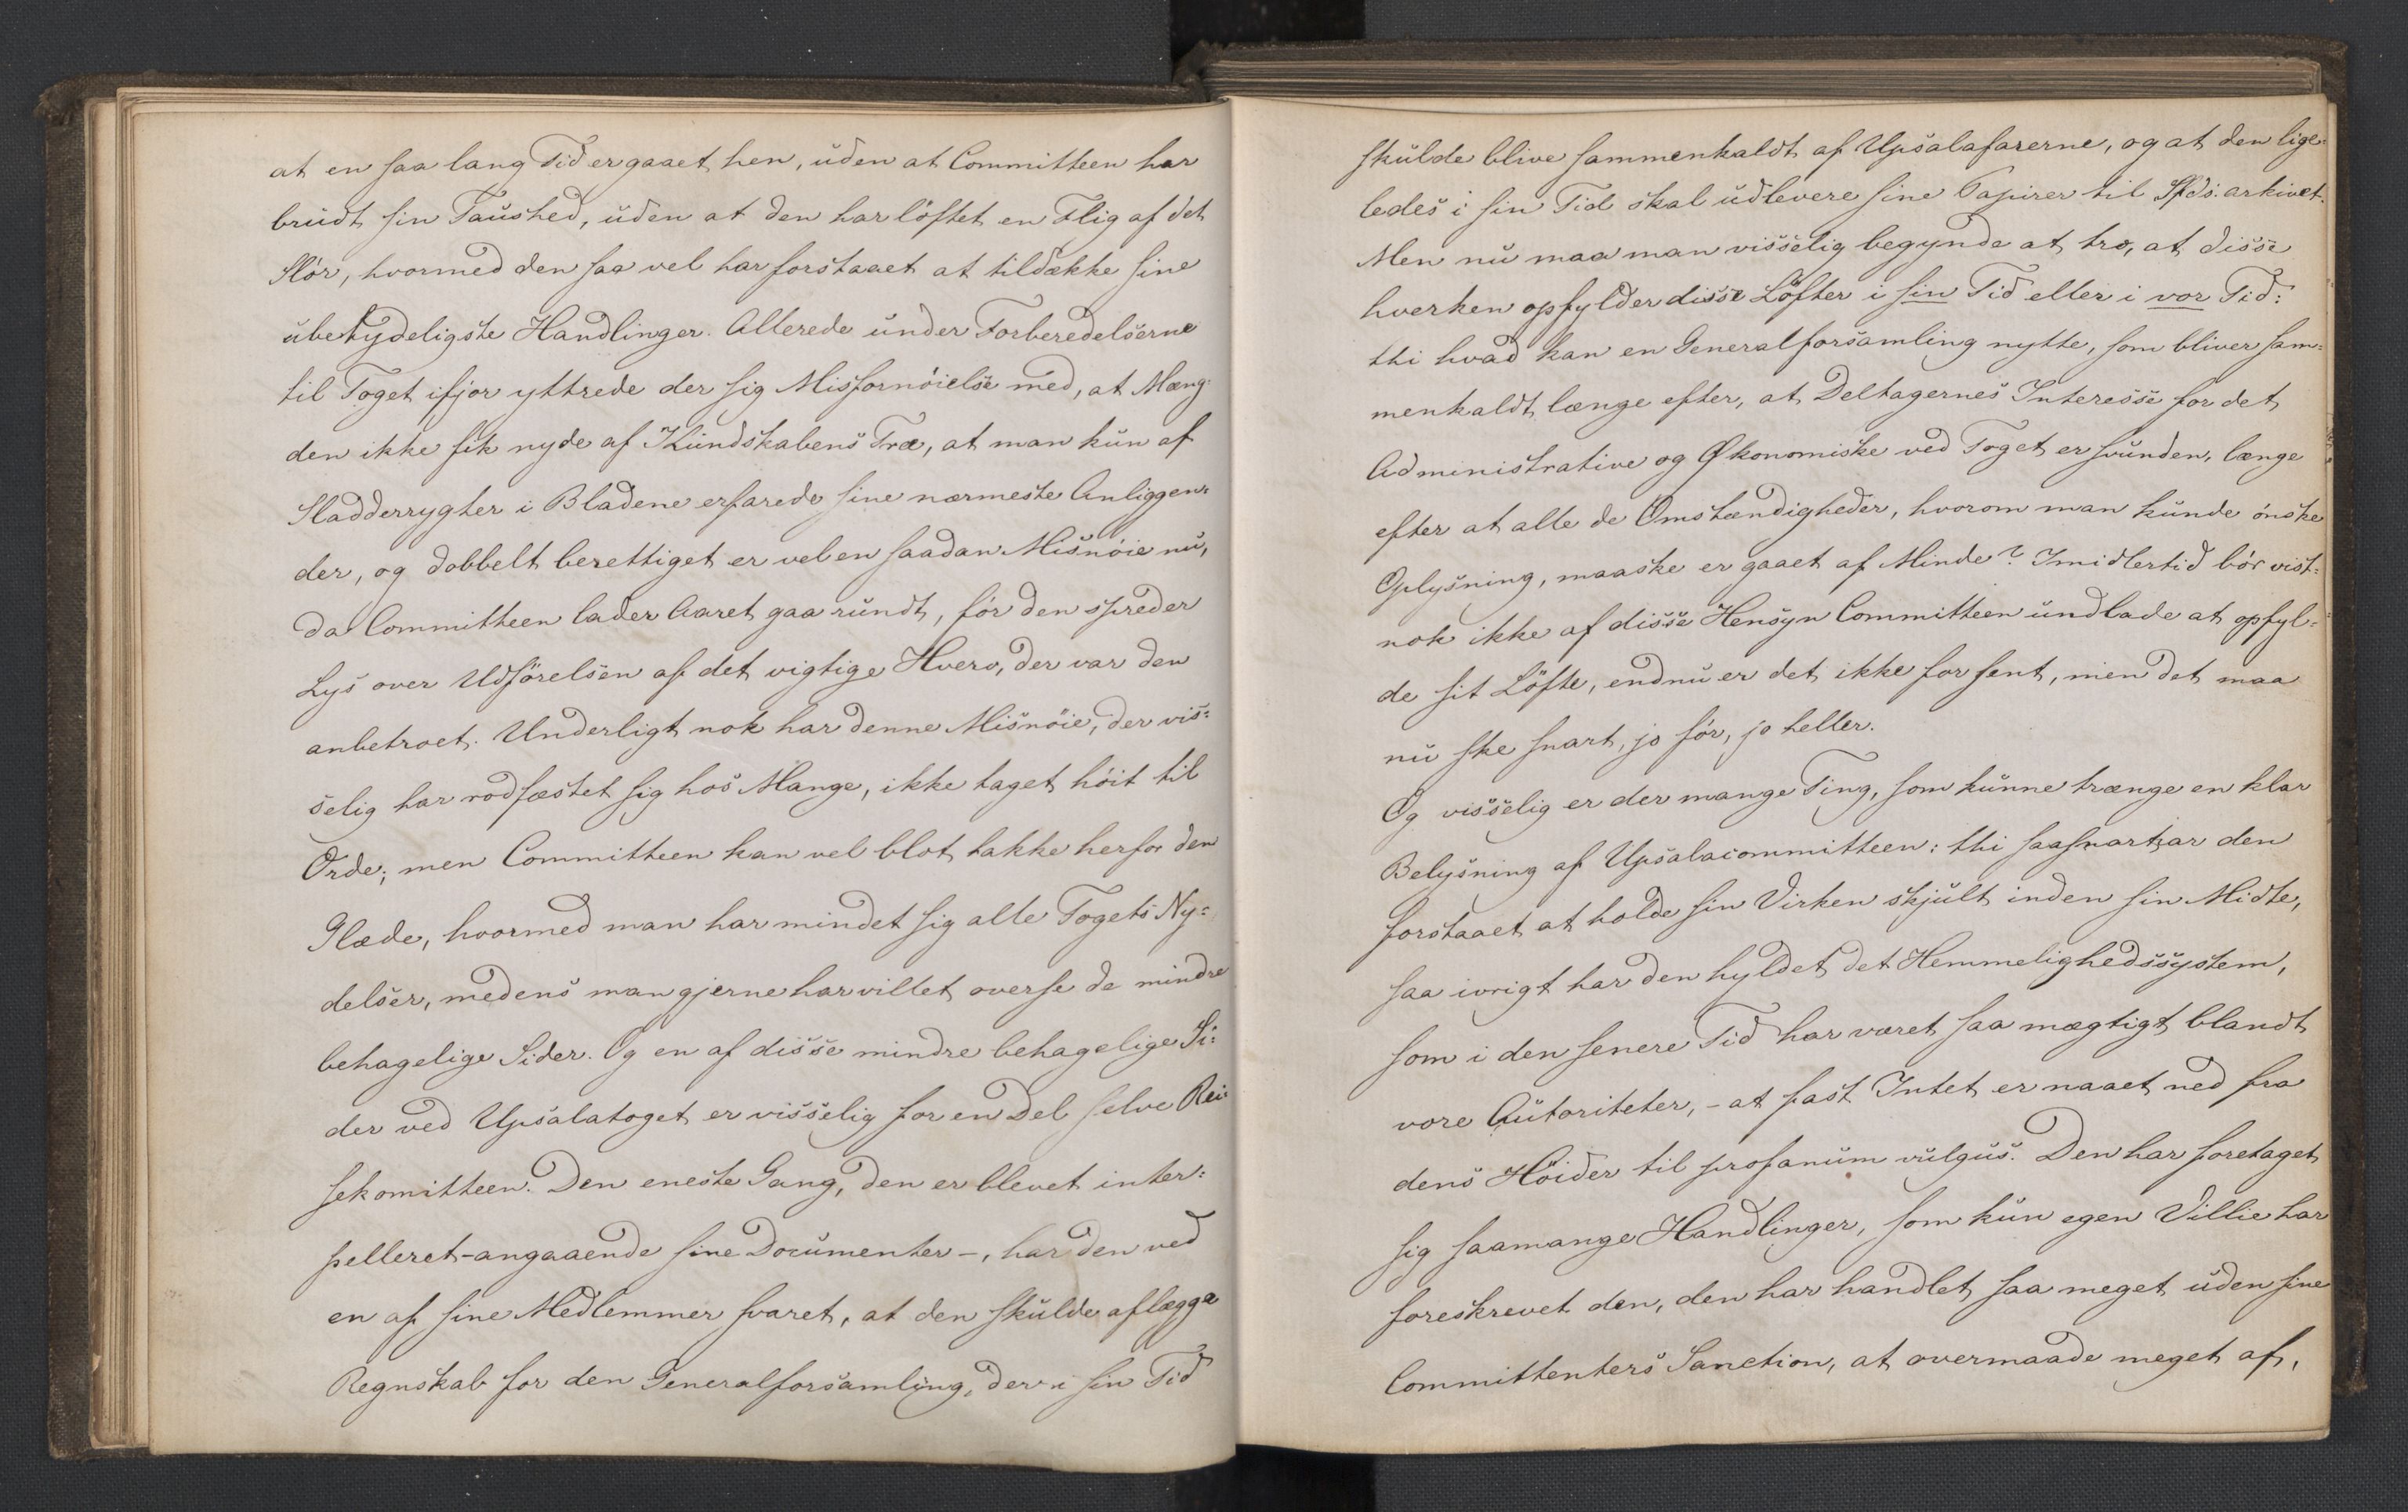 at en saa lang Tid er gaaet hen, uden at Committeen har
brudt sin Taushed, uden at den har löftet en Flig af det
Slör, hvormed den saa vel har forstaaet at tildække sine
ubetydeligste Handlinger. Allerede under Forberedelserne
til Toget ifjor yttrede der sig Misfornöielse med, at Mæng-
den ikke fik nyde af Kundskabens Træ, at man kun af
Sladderrygter i Bladene erfarede sine nærmeste Anliggen=
der, og dobbelt berettiget er vel en saadan Misnöie nu,
da Committeen lader Aaret gaa rundt, för den spreder
Lys over Udförelsen af det vigtige Hverv, der var den
anbetroet. Underligt nok har denne Misnöie, der vis=
selig har rodfæstet sig hos Mange, ikke taget höit til
Orde; men Committeen kan vel blot takke herfor den
Glæde, hvormed man har mindet sig alle Togets Ny=
delser, medens man gjerne har villet overse de mindre
behagelige Sider. Og en af disse mindre behagelige Si=
der ved Upsalatoget er visselig for en Del selve Rei=
sekomitteen. Den eneste Gang, den er blevet inter=
pelleret - angaaende sine Documenter -, har den ved
en af sine Medlemmer svaret, at den skulde aflægge
Regnskab for den Generalforsamling, der i sin Tid
skulde blive sammenkaldt af Upsalafarerne, og at den lige=
ledes i sin Tid skal udlevere sine Papirer til Sfds. arkivet.
Men nu maa man visselig begynde at tro, at disse
hverken opfylder disse Löfter i sin Tid eller i vor Tid:
thi hvad kan en Generalforsamling nytte, som bliver sam=
menkaldt længe efter, at Deltagernes Interesse for det
Administrative og Økonomiske ved Toget er svunden, længe
efter at alle de Omstændigheder, hvorom man kunde önske
Oplysning, maaske er gaaet af Minde? Imidlertid bör vist=
nok ikke af disse Hensyn Committeen undlade at opfyl=
de sit Löfte, endnu er det ikke for sent, men det maa
nu ske snart, jo för, jo heller.
Og visselig er der mange Ting, som kunne trænge en klar
Belysning af Upsalacommitteen: thi saa snart har den
forstaaet at holde sin Virken skjult inden sin Midte,
saa ivrigt har den hyldet det Hemmelighedssystem,
som i den senere Tid har været saa mægtigt blandt
vore Autoriteter, - at fast Intet er naaet ned fra
dens Höider til profanum vulgus. Den har foretaget
sig saamange Handlinger, som kun egen Villie har
foreskrevet den, den har handlet saa meget uden sine
Committenters Sanction, at overmaade meget af,